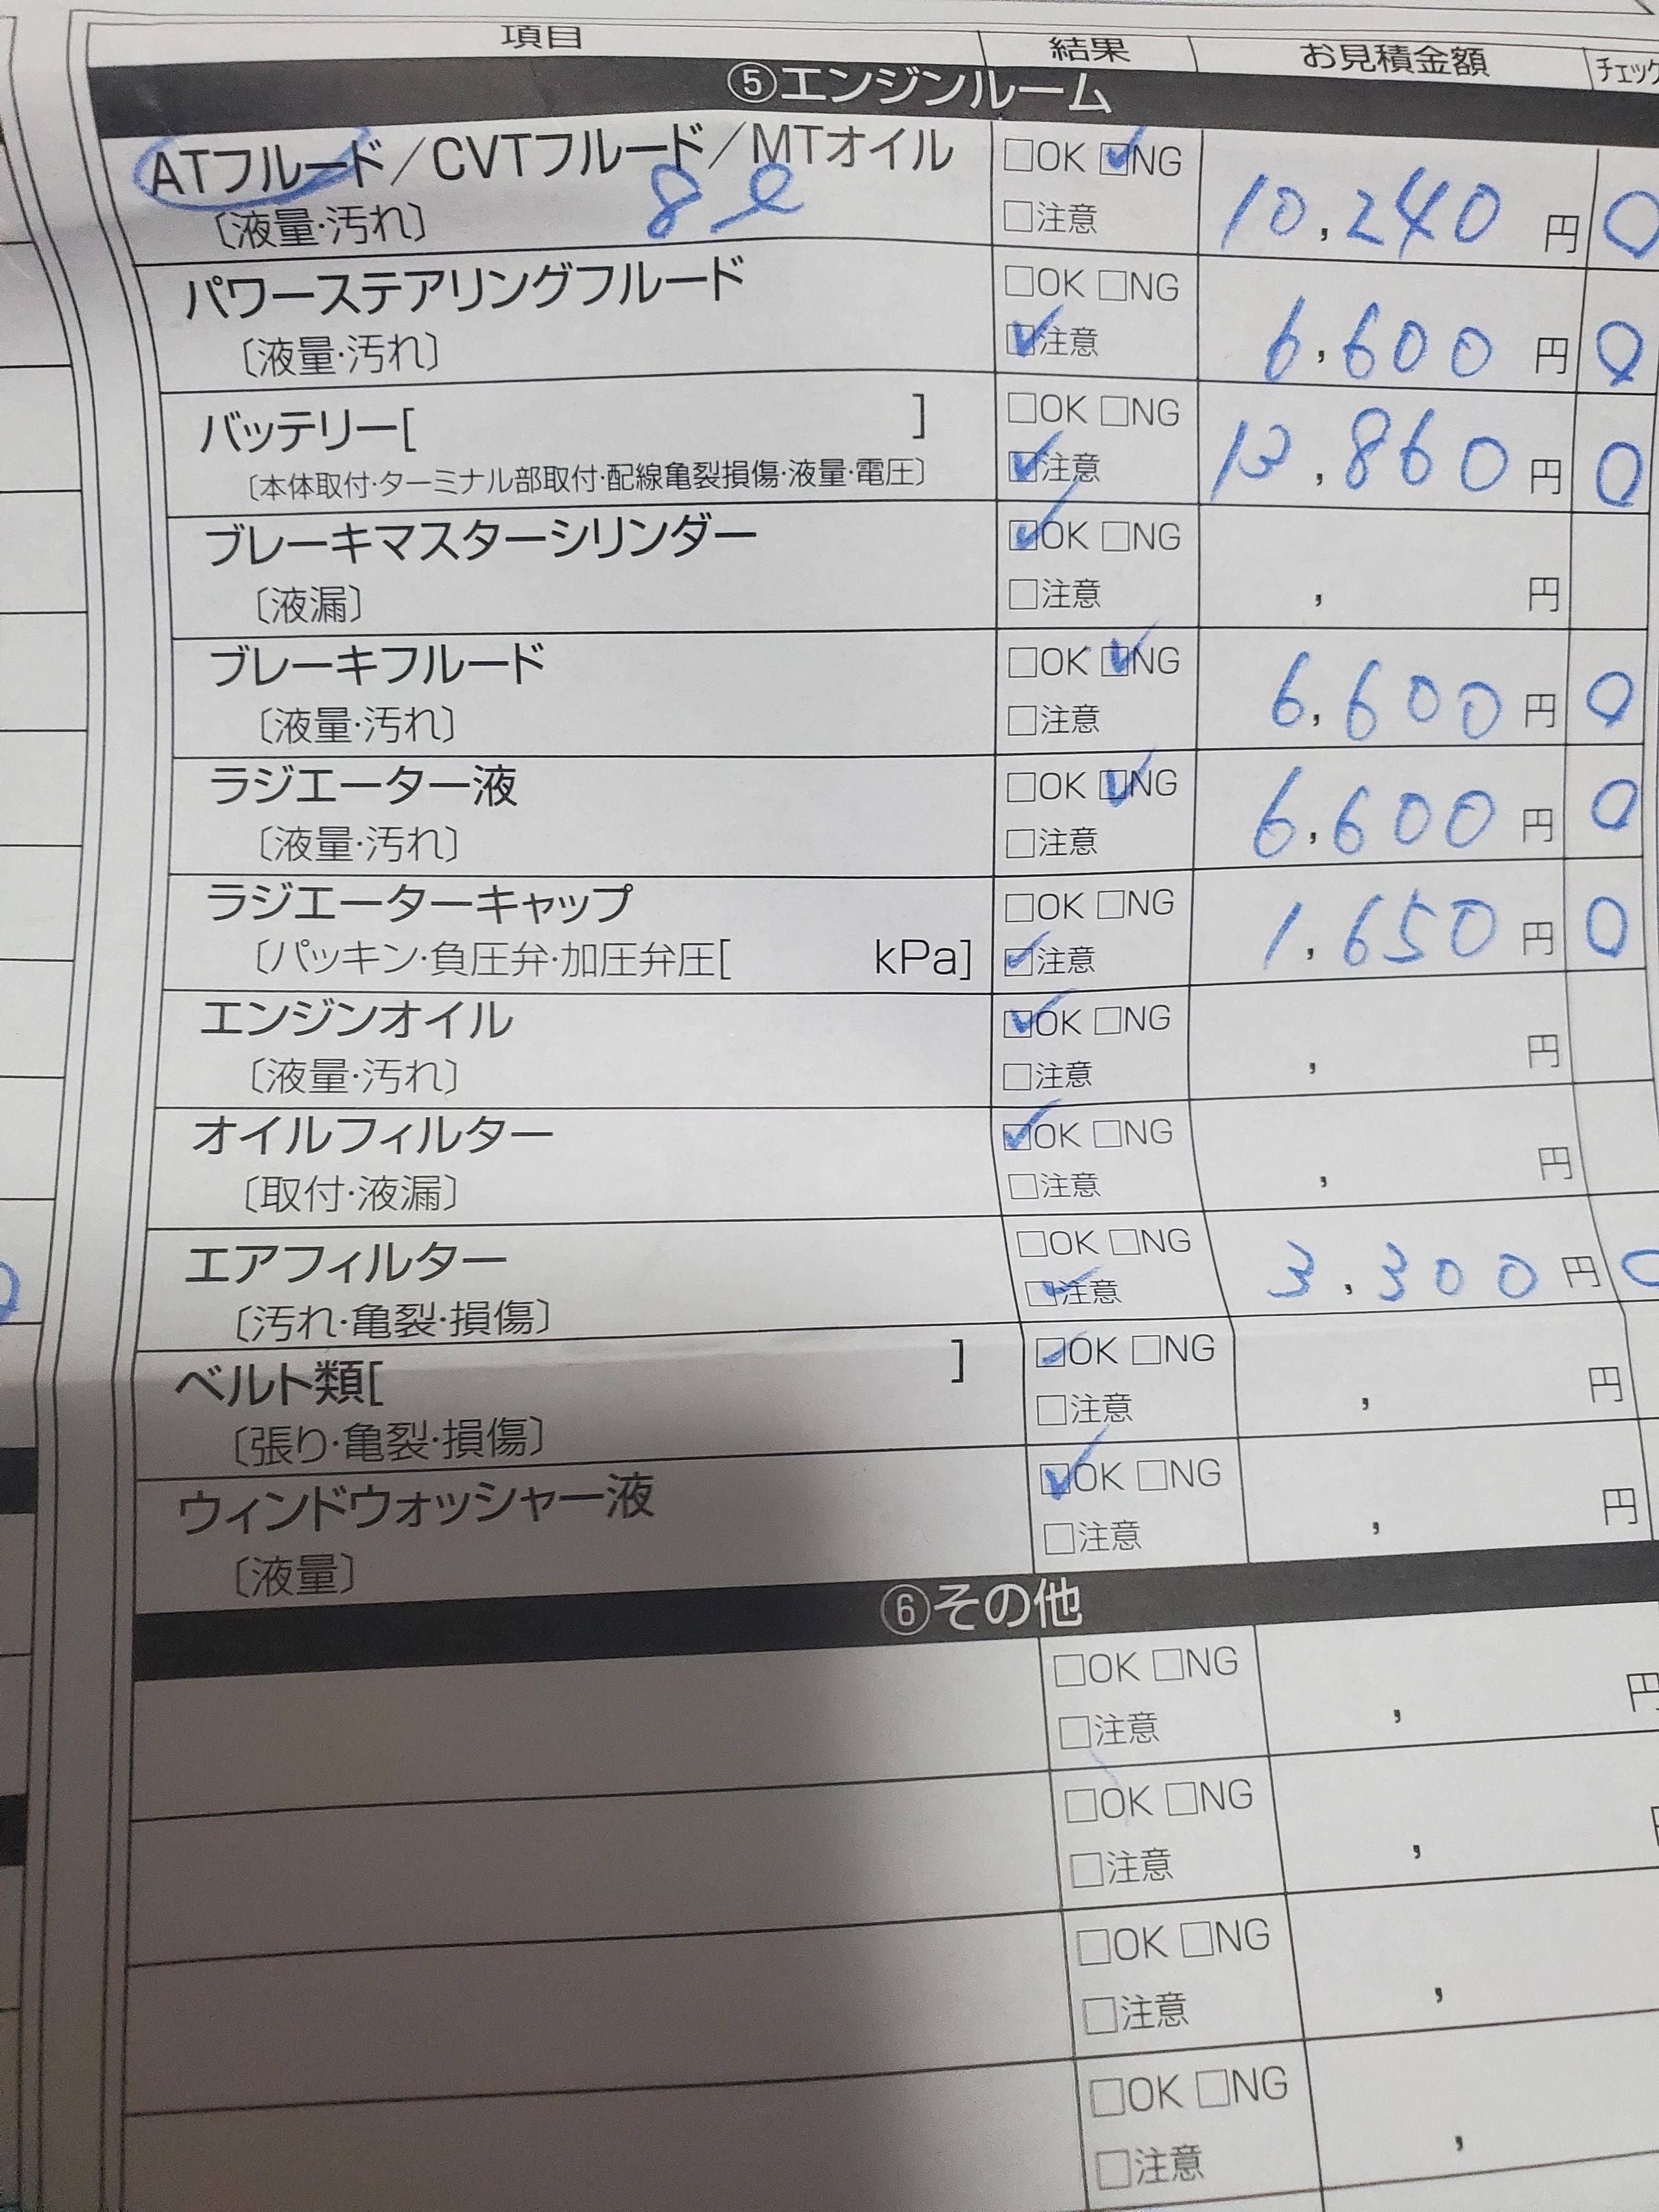 項目 結果 お見積金額 チェック
⑤エンジンルーム
ATフルード/CVTフルード/MTオイル □OK ☑NG
8ℓ 10,240円 〇
〔液量・汚れ〕 □注意
パワーステアリングフルード □OK □NG
〔液量・汚れ〕 ☑注意 6,600円 〇
バッテリー[ ] □OK □NG
〔本体取付・ターミナル部取付・配線亀裂損傷・液量・電圧〕 ☑注意 13,860円 〇
ブレーキマスターシリンダー ☑OK □NG
〔液漏〕 □注意 , 円
ブレーキフルード □OK ☑NG
〔液量・汚れ〕 □注意 6,600円 〇
ラジエーター液 □OK ☑NG
〔液量・汚れ〕 □注意 6,600円 〇
ラジエーターキャップ □OK □NG
〔パッキン・負圧弁・加圧弁圧[ kPa] ☑注意 1,650円 〇
エンジンオイル ☑OK □NG
〔液量・汚れ〕 □注意 , 円
オイルフィルター ☑OK □NG
〔取付・液漏〕 □注意 , 円
エアフィルター □OK □NG
〔汚れ・亀裂・損傷〕 ☑注意 3,300円 〇
ベルト類[ ] ☑OK □NG
〔張り・亀裂・損傷〕 □注意 , 円
ウィンドウォッシャー液 ☑OK □NG
〔液量〕 □注意 , 円
⑥その他
□OK □NG
□注意 , 円
□OK □NG
□注意 , 円
□OK □NG
□注意 ,
□OK □NG
□注意 ,